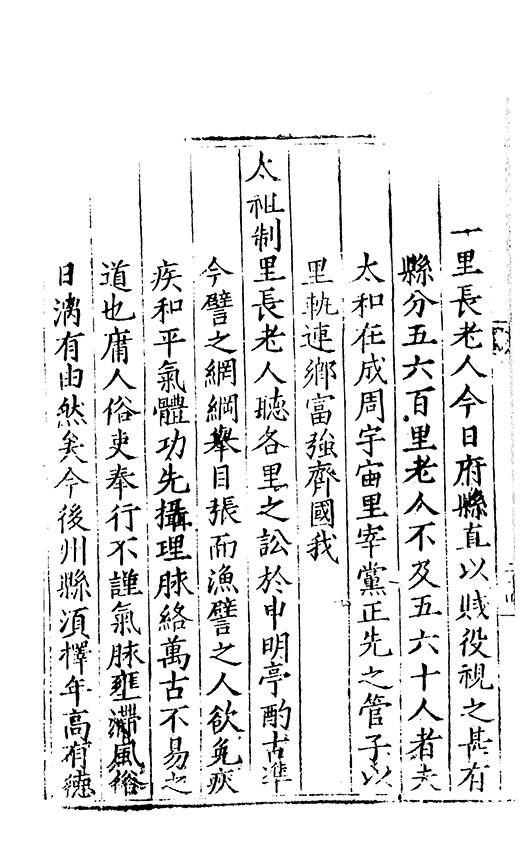 一里長老人今日府縣直以賤役視之甚有
縣分五六百里老人不及五六十人者夫
太和在成周宇宙里宰黨正先之管子以
里軌連鄉富強齊國我
太祖制里長老人聽各里之訟於申明亭酌古準
今譬之網綱舉目張而漁譬之人欲免疾
疾和平氣體功先攝理脉絡萬古不易之
道也庸人俗吏奉行不謹氣脉壅滯風俗
日漓有由然矣今後州縣須擇年高有德